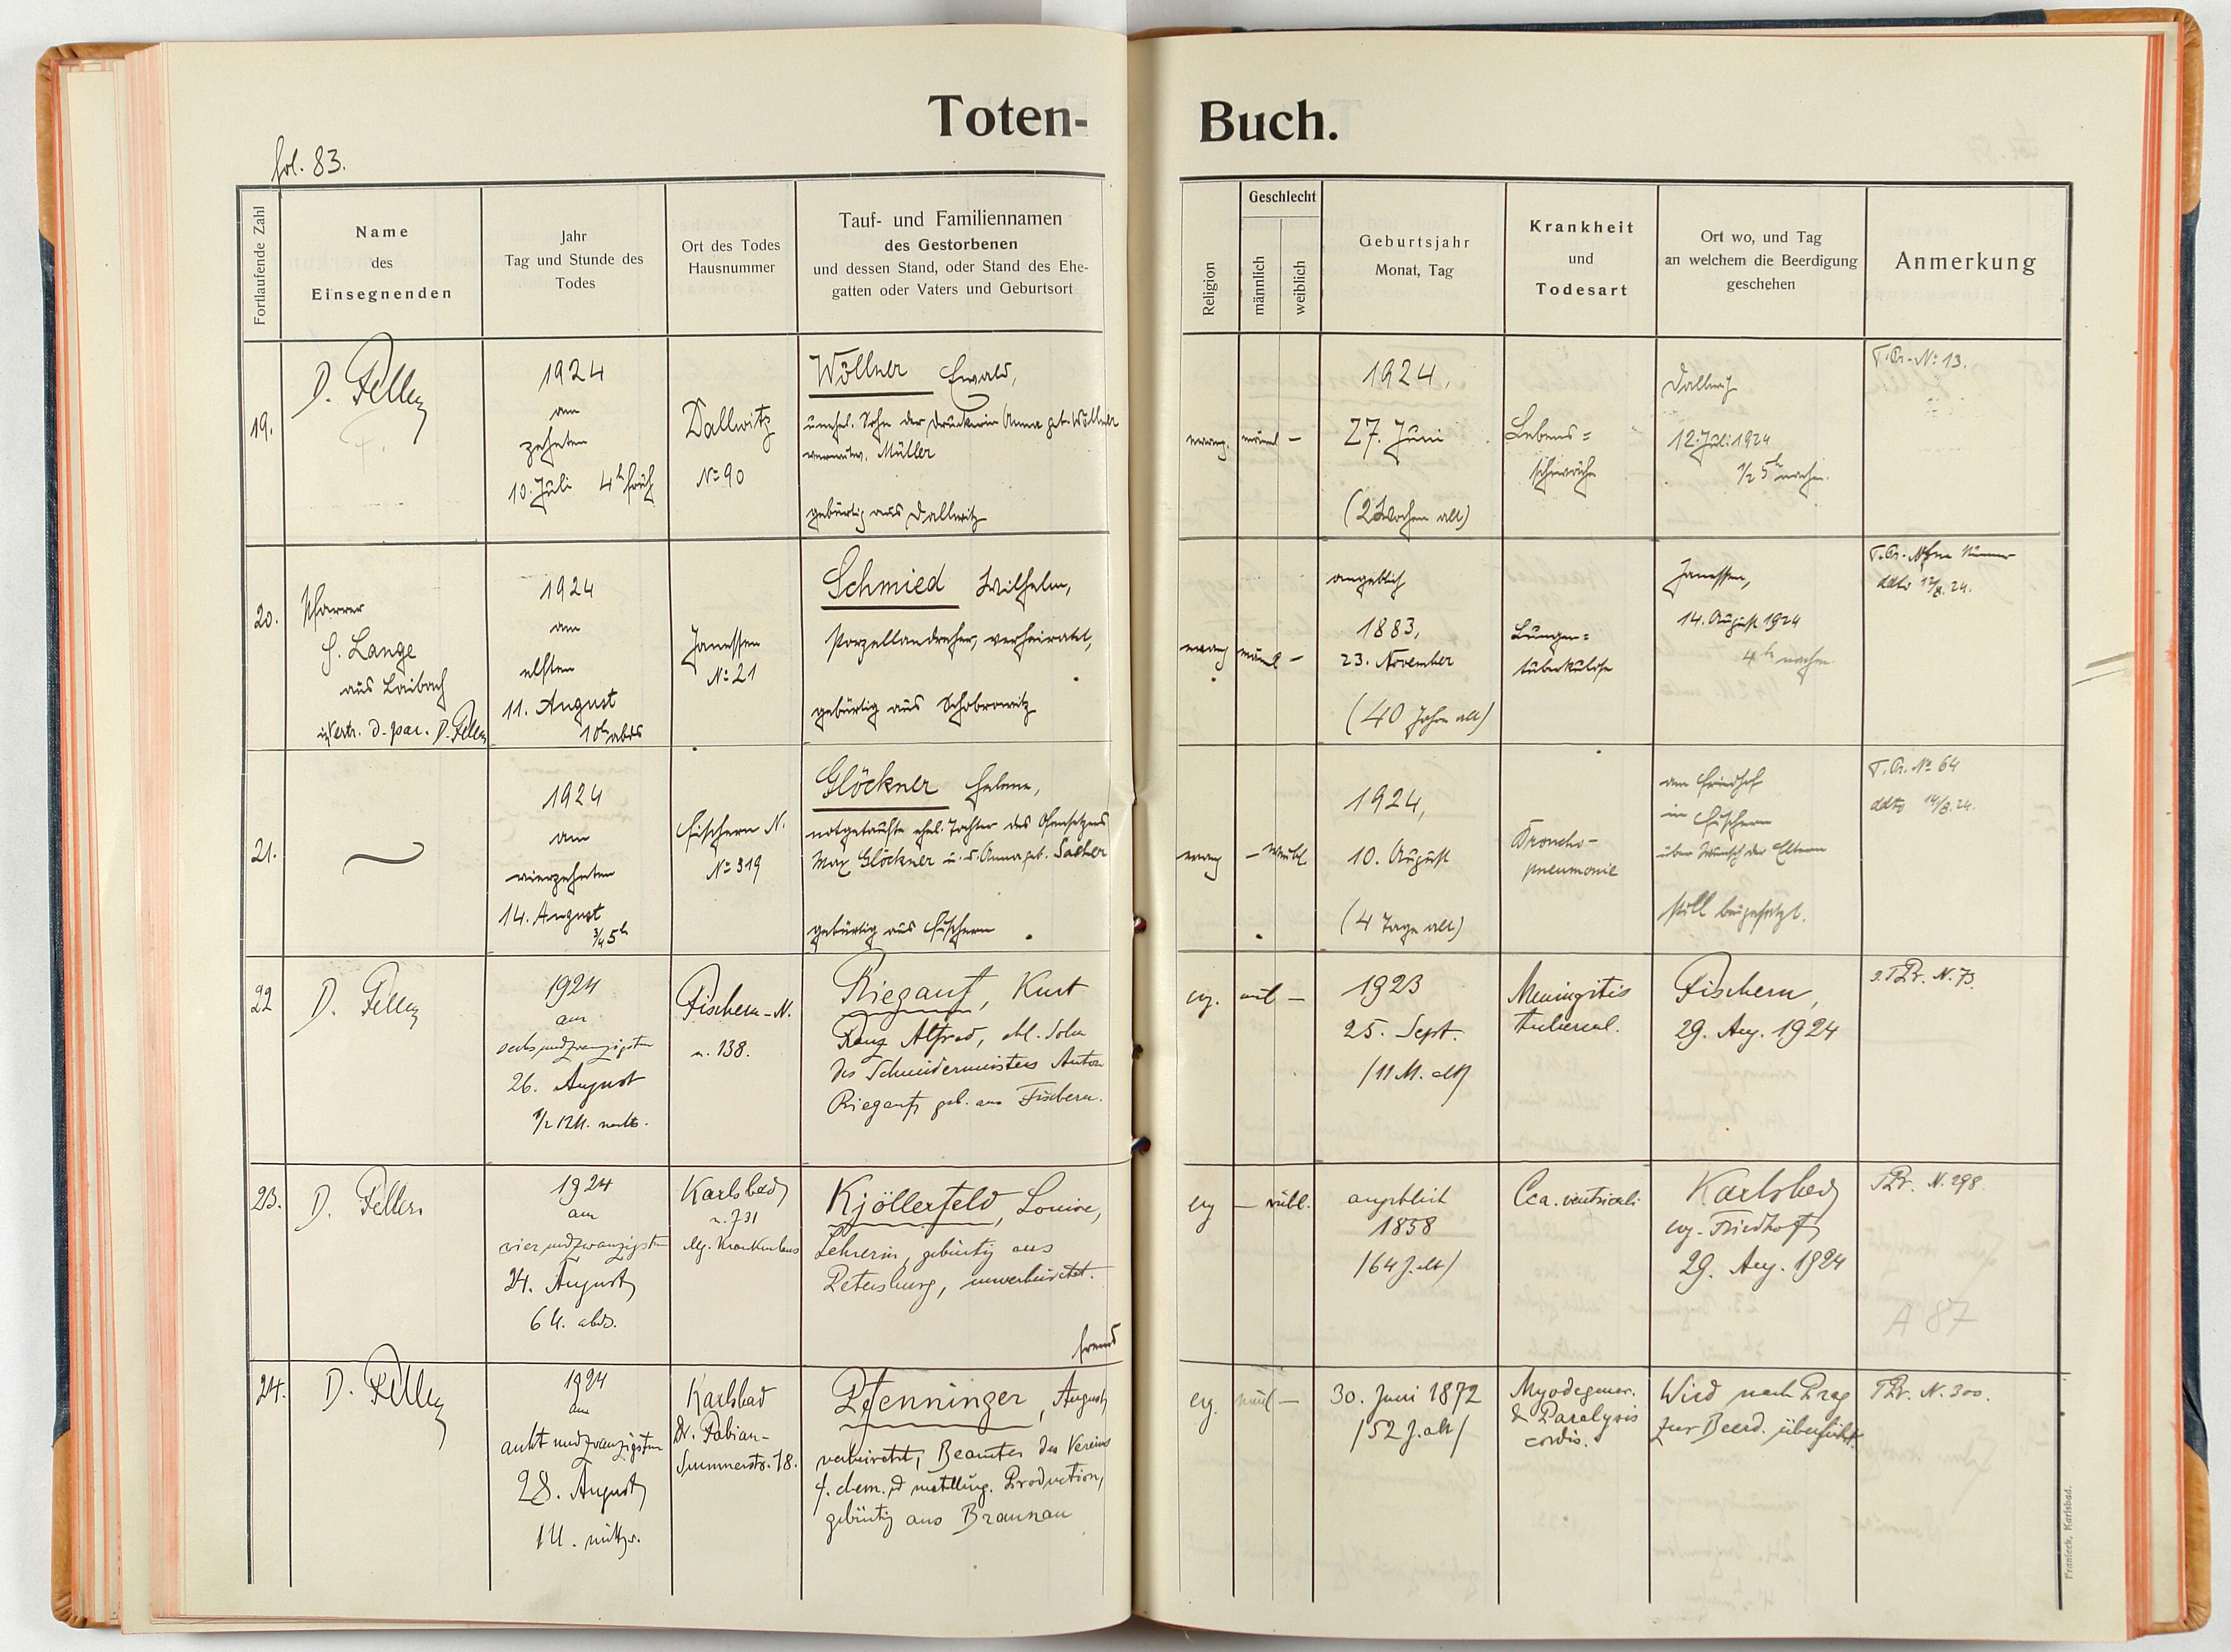 Toten-Buch.
fol. 83.
Fortlaufende Zahl
Name
des
Einsegnenden
Jahr
Tag und Stunde des
Todes
Ort des Todes
Hausnummer
Tauf- und Familiennamen
des Gestorbenen
und dessen Stand, oder Stand des Ehe-
gatten oder Vaters und Geburtsort
Religion
Geschlecht
männlich
weiblich
Geburtsjahr
Monat, Tag
Krankheit
und
Todesart
Ort wo, und Tag
an welchem die Beerdigung
geschehen
Anmerkung
19.
D.
1924
am
zehnten
10. Juli 4h früh
Dallwitz
No 90
Wöllner Ewald,
unehel. Sohn der Druckerin Anna geb. Wöllner
verwitw. Müller
gebürtig aus Dallwitz
evang.
männl
-
1924,
27. Juni
(2 Wochen alt)
Lebens=
schwäche
Dallwitz
12. Juli 1924
1/2 5h nachm.
No 13.
20.
Pfarrer
Lange
aus Laibach
1924
am
elften
11. August
10h abds
Janessen
No 21
Schmied Wilhelm,
Porzellandreher, verheiratet,
gebürtig aus Schobrowitz
evang
männl
-
angeblich
1883,
23. November
(40 Jahre alt)
Lungen=
tuberkulose
Janessen,
14. August 1924
4h nachm.
ddto 12/8. 24.
21.
1924
am
vierzehnten
14. August
3/4 5h
Fischern N.
No 319
Glöckner Helene,
notgetaufte ehel. Tochter des Ofensetzers
Max Glöckner u. d. Anna geb.
gebürtig aus Fischern
evang
-
weibl
1924,
10. August
(4 Tage alt)
Broncho-
pneumonie
am Friedhof
in Fischern
über Wunsch der Eltern
still beigesetzt.
No 64
ddto 14/8. 24.
22
D.
1924
am
sechsundzwanzigsten
26. August
1/2 12 U. nachts.
Fischern-N.
n. 138.
Riegauf, Kurt
Alfred, ehl. Sohn
des Schneidermeisters Anton
Riegauf, geb. aus Fischern.
ev.
ml
-
1923
25. Sept.
/11 M. alt/
Meningitis
tubercul.
Fischern,
29. Aug. 1924
N. 73.
23.
D. Feller
1924
am
vierundzwanzigsten
24. August
6 U. abds.
Karlsbad
n. 731
Allg. Krankenhaus
Kjöllerfeld, Louise,
Lehrerin, gebürtig aus
Petersburg, unverheiratet.
fremd
ev
-
wbl.
angeblich
1858
/64 J. alt/
Cca. ventriculi
Karlsbad
ev. Friedhof
29. Aug. 1924
N. 298.
A 87
24.
D.
1924
am
achtundzwanzigsten
28. August
1 U. mittgs.
Karlsbad
Dr. Fabian-
18.
Pfenninger, August,
verheiratet, Beamter des Vereins
f. chem. u. metallurg. Production,
gebürtig aus Braunau
ev.
männl
-
30. Juni 1872
/52 J. alt/
Myodegener.
& Paralysis
cordis.
Wird nach Prag
zur Beerd. überführt.
N. 300.
Franieck, Karlsbad.